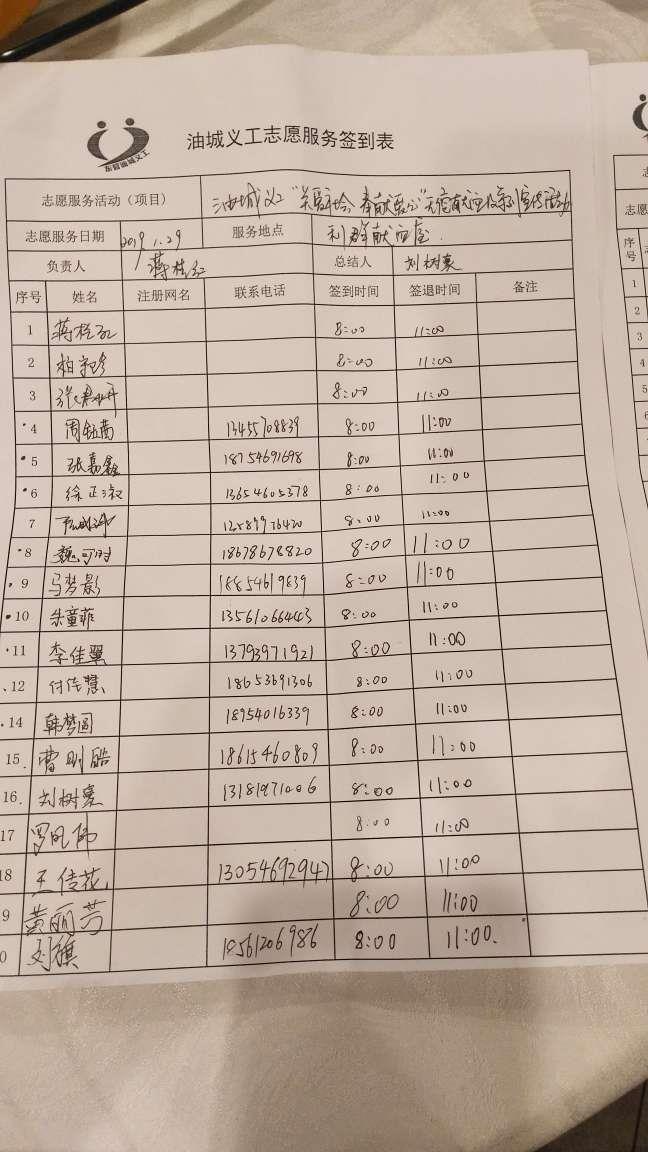 东营油城义工
油城义工志愿服务签到表
志愿服务活动（项目） 油城义工“关爱社会 奉献爱心”无偿献血及系列宣传活动
志愿服务日期 2019.1.29 服务地点 利群献血屋.
负责人 蒋桂红 总结人 刘树褒
序号 姓名 注册网名 联系电话 签到时间 签退时间 备注
1 蒋桂红 8:00 11:00
2 8:00 11:00
3 8:00 11:00
4 周钰茜 13455708839 8:00 11:00
5 张嘉鑫 18754691698 8:00 11:00
6 徐正淑 13654605378 8:00 11:00
7 8:00 11:00
8 魏可时 18678678820 8:00 11:00
9 马梦影 18854619839 8:00 11:00
10 朱童菲 13561066443 8:00 11:00
11 李佳翼 13793971921 8:00 11:00
12 付佳慧 18653691306 8:00 11:00
14 韩梦圆 18954016339 8:00 11:00
15. 曹刚皓 18615460809 8:00 11:00
16. 刘树褒 8:00 11:00
17 罗凤伟 8:00 11:00
8 王佳花 13054692947 8:00 11:00
9 黄丽芳 8:00 11:00
0 刘旗 8:00 11:00.
志愿
序号
1
2
3
4
5
6